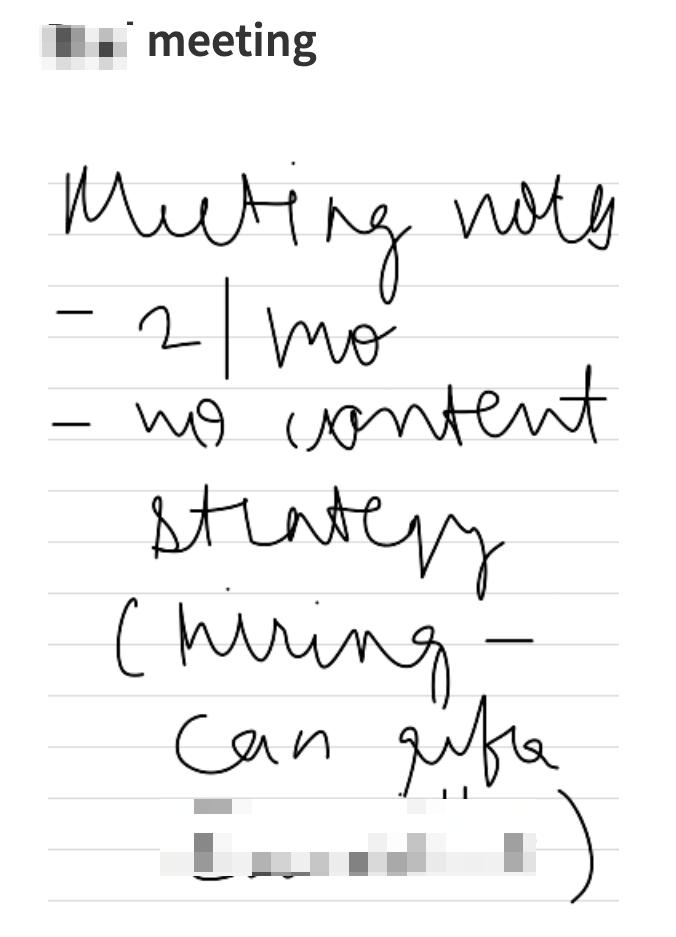 meeting
Meeting notes
- 2/mo
- no content
strategy
(hiring -
can
)